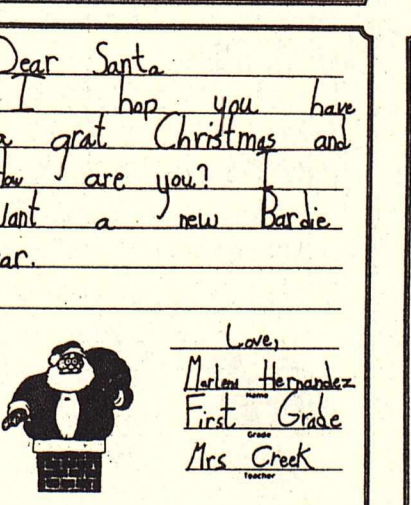 Dear Santa
I hop you have
a grat Christmas and
How are you? I
Want a new Bardie
ar.
Love,
Marlena Hernandez
Name
First Grade
Grade
Mrs Creek
Teacher